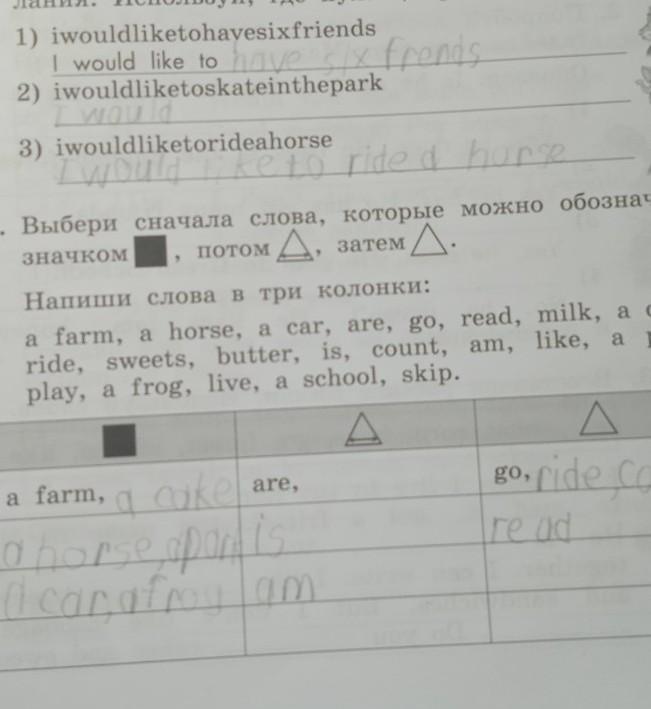 1) iwouldliketohavesixfriends
I would like to have six frends
2) iwouldliketoskateinthepark
I would
3) iwouldliketorideahorse
I would like to ride a horse
Выбери сначала слова, которые можно обознач
значком , потом , затем .
Напиши слова в три колонки:
a farm, a horse, a car, are, go, read, milk, a
ride, sweets, butter, is, count, am, like, a
play, a frog, live, a school, skip.
a farm, a cake are, go, ride,
a horse, is read
a car, a frog am